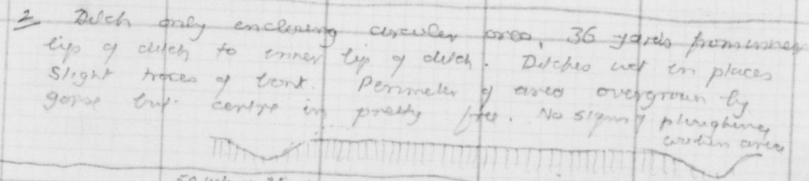 2 Ditch only enclosing circular area, 36 yards from inner
lip of ditch to inner lip of ditch. Ditches wet in places
Slight traces of bank. Perimeter of area overgrown by
gorse but centre is pretty free. No signs of ploughing
within area